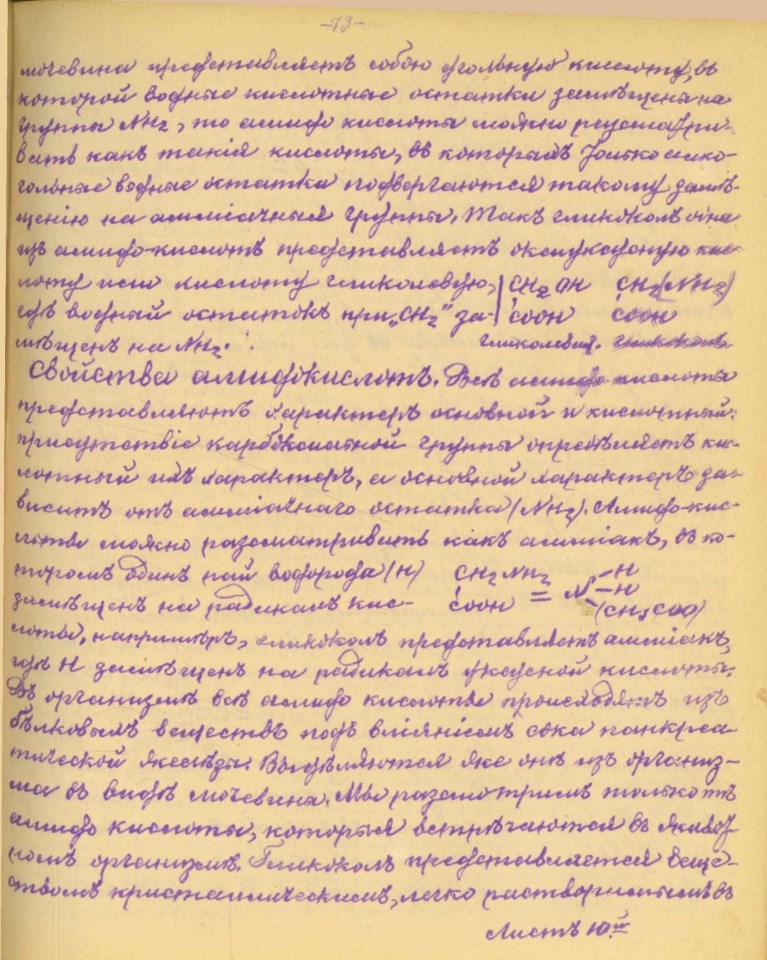 -73-
мочевина представляетъ собою угольную кислоту, въ
которой водные кислотные остатки замѣщены на
группы NH2, то амидо кислоты можно разсматри-
вать какъ такія кислоты, въ которыхъ только алко-
гольные водные остатка подвергаются такому замѣ-
щенію на амміачныя группы. Такъ гликоколъ одна
изъ амидо-кислотъ представляетъ оксиуксусную кис-
лоту или кислоту гликолевую, CH2OH CH2(NH2)
гдѣ водный остатокъ при „CH2" за- COOH COOH
мѣщенъ на NH2. гликолевая. гликоколъ.
Свойства амидокислотъ. Всѣ амидо-кислоты
представляютъ характеръ основной и кислотный:
присутствіе карбоксильной группы опредѣляетъ кис-
лотный ихъ характеръ, а основной характеръ за-
виситъ отъ амміачнаго остатка (NH2). Амидо-кис-
лоты можно разсматривать какъ амміакъ, въ ко-
торомъ одинъ пай водорода (H) CH2NH2 H
замѣщенъ на радикалъ кис- COOH = N H (CH2COO)
лоты, напримѣръ, гликоколъ представляетъ амміакъ,
гдѣ H замѣщенъ на радикалъ уксусной кислоты.
Въ организмѣ всѣ амидо кислоты происходятъ изъ
бѣлковыхъ веществъ подъ вліяніемъ сока панкреа-
тической железы. Выдѣляются же онѣ изъ организ-
ма въ видѣ мочевины. Мы разсмотримъ только тѣ
амидо кислоты, которыя встрѣчаются въ живот-
номъ организмѣ. Гликоколъ представляется веще-
ствомъ кристаллическимъ, легко растворимымъ въ
Листъ 10.й